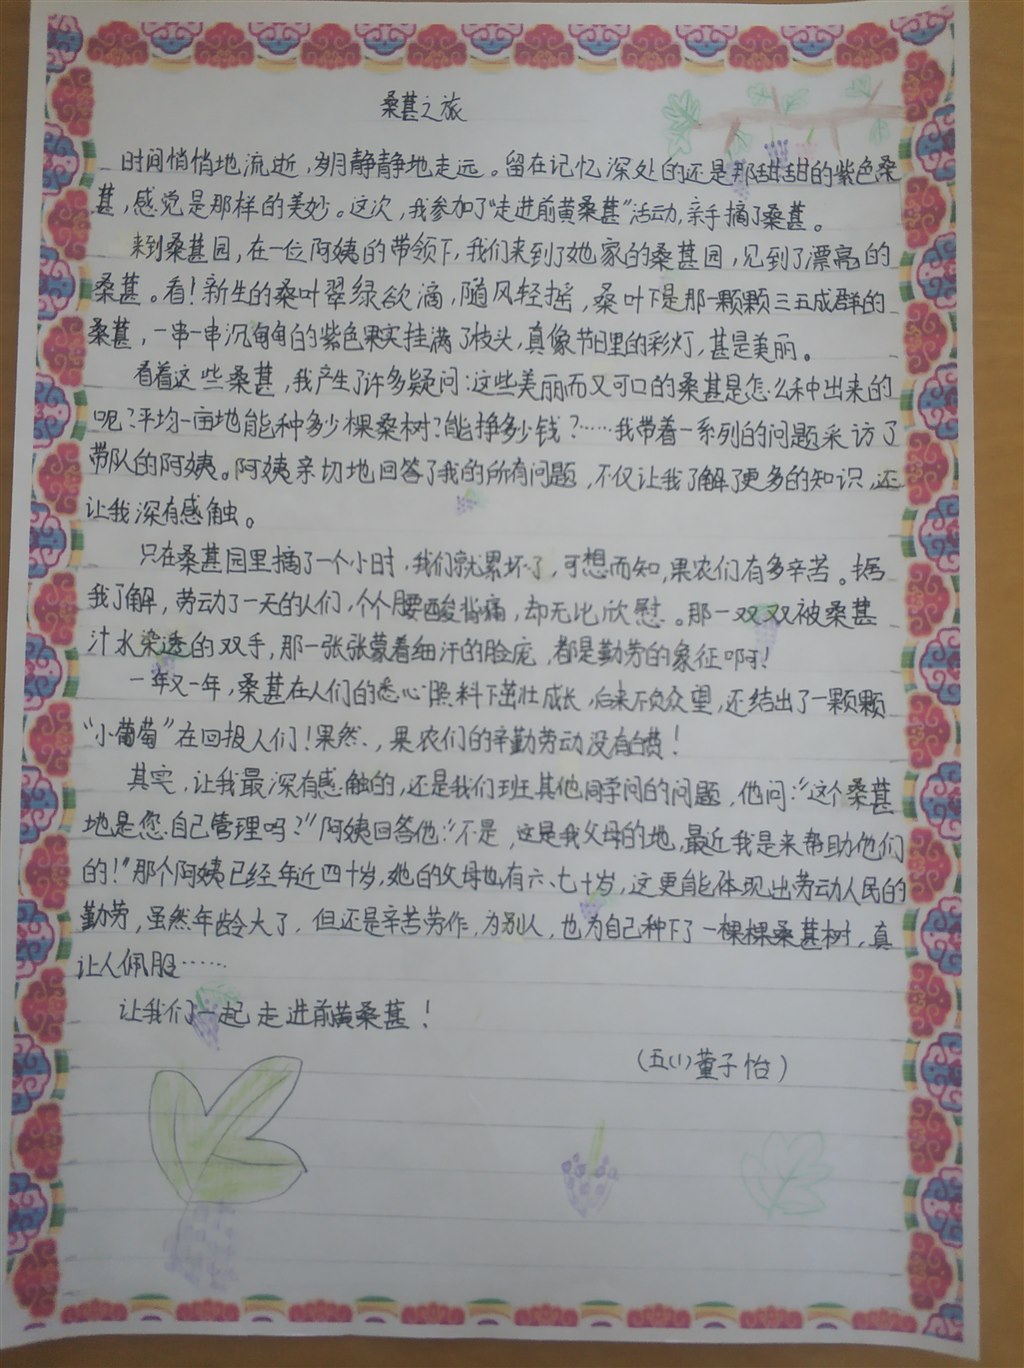 桑葚之旅
时间悄悄地流逝，岁月静静地走远。留在记忆深处的还是那甜甜的紫色桑
葚，感觉是那样的美妙。这次，我参加了“走进前黄桑葚”活动，亲手摘了桑葚。
来到桑葚园，在一位阿姨的带领下，我们来到了她家的桑葚园，见到了漂亮的
桑葚。看！新生的桑叶翠绿欲滴，随风轻摇，桑叶下是那一颗颗三五成群的
桑葚，一串一串沉甸甸的紫色果实挂满了枝头，真像节日里的彩灯，甚是美丽。
看着这些桑葚，我产生了许多疑问：这些美丽而又可口的桑葚是怎么种出来的
呢？平均一亩地能种多少棵桑树？能挣多少钱？……我带着一系列的问题采访了
带队的阿姨。阿姨亲切地回答了我的所有问题，不仅让我了解了更多的知识，还
让我深有感触。
只在桑葚园里摘了一个小时，我们就累坏了，可想而知，果农们有多辛苦。据
我了解，劳动了一天的人们，个个腰酸背痛，却无比欣慰。那一双双被桑葚
汁水染透的双手，那一张张蒙着细汗的脸庞，都是勤劳的象征啊！
一年又一年，桑葚在人们的悉心照料下茁壮成长，后来不负众望，还结出了一颗颗
“小葡萄”在回报人们！果然，果农们的辛勤劳动没有白费！
其实，让我最深有感触的，还是我们班其他同学问的问题，他问：“这个桑葚
地是您自己管理吗？”阿姨回答他：“不是，这是我父母的地，最近我是来帮助他们
的！”那个阿姨已经年近四十岁，她的父母也有六、七十岁，这更能体现出劳动人民的
勤劳，虽然年龄大了，但还是辛苦劳作，为别人，也为自己种下了一棵棵桑葚树，真
让人佩服……
让我们一起走进前黄桑葚！
（五(1)董子怡）